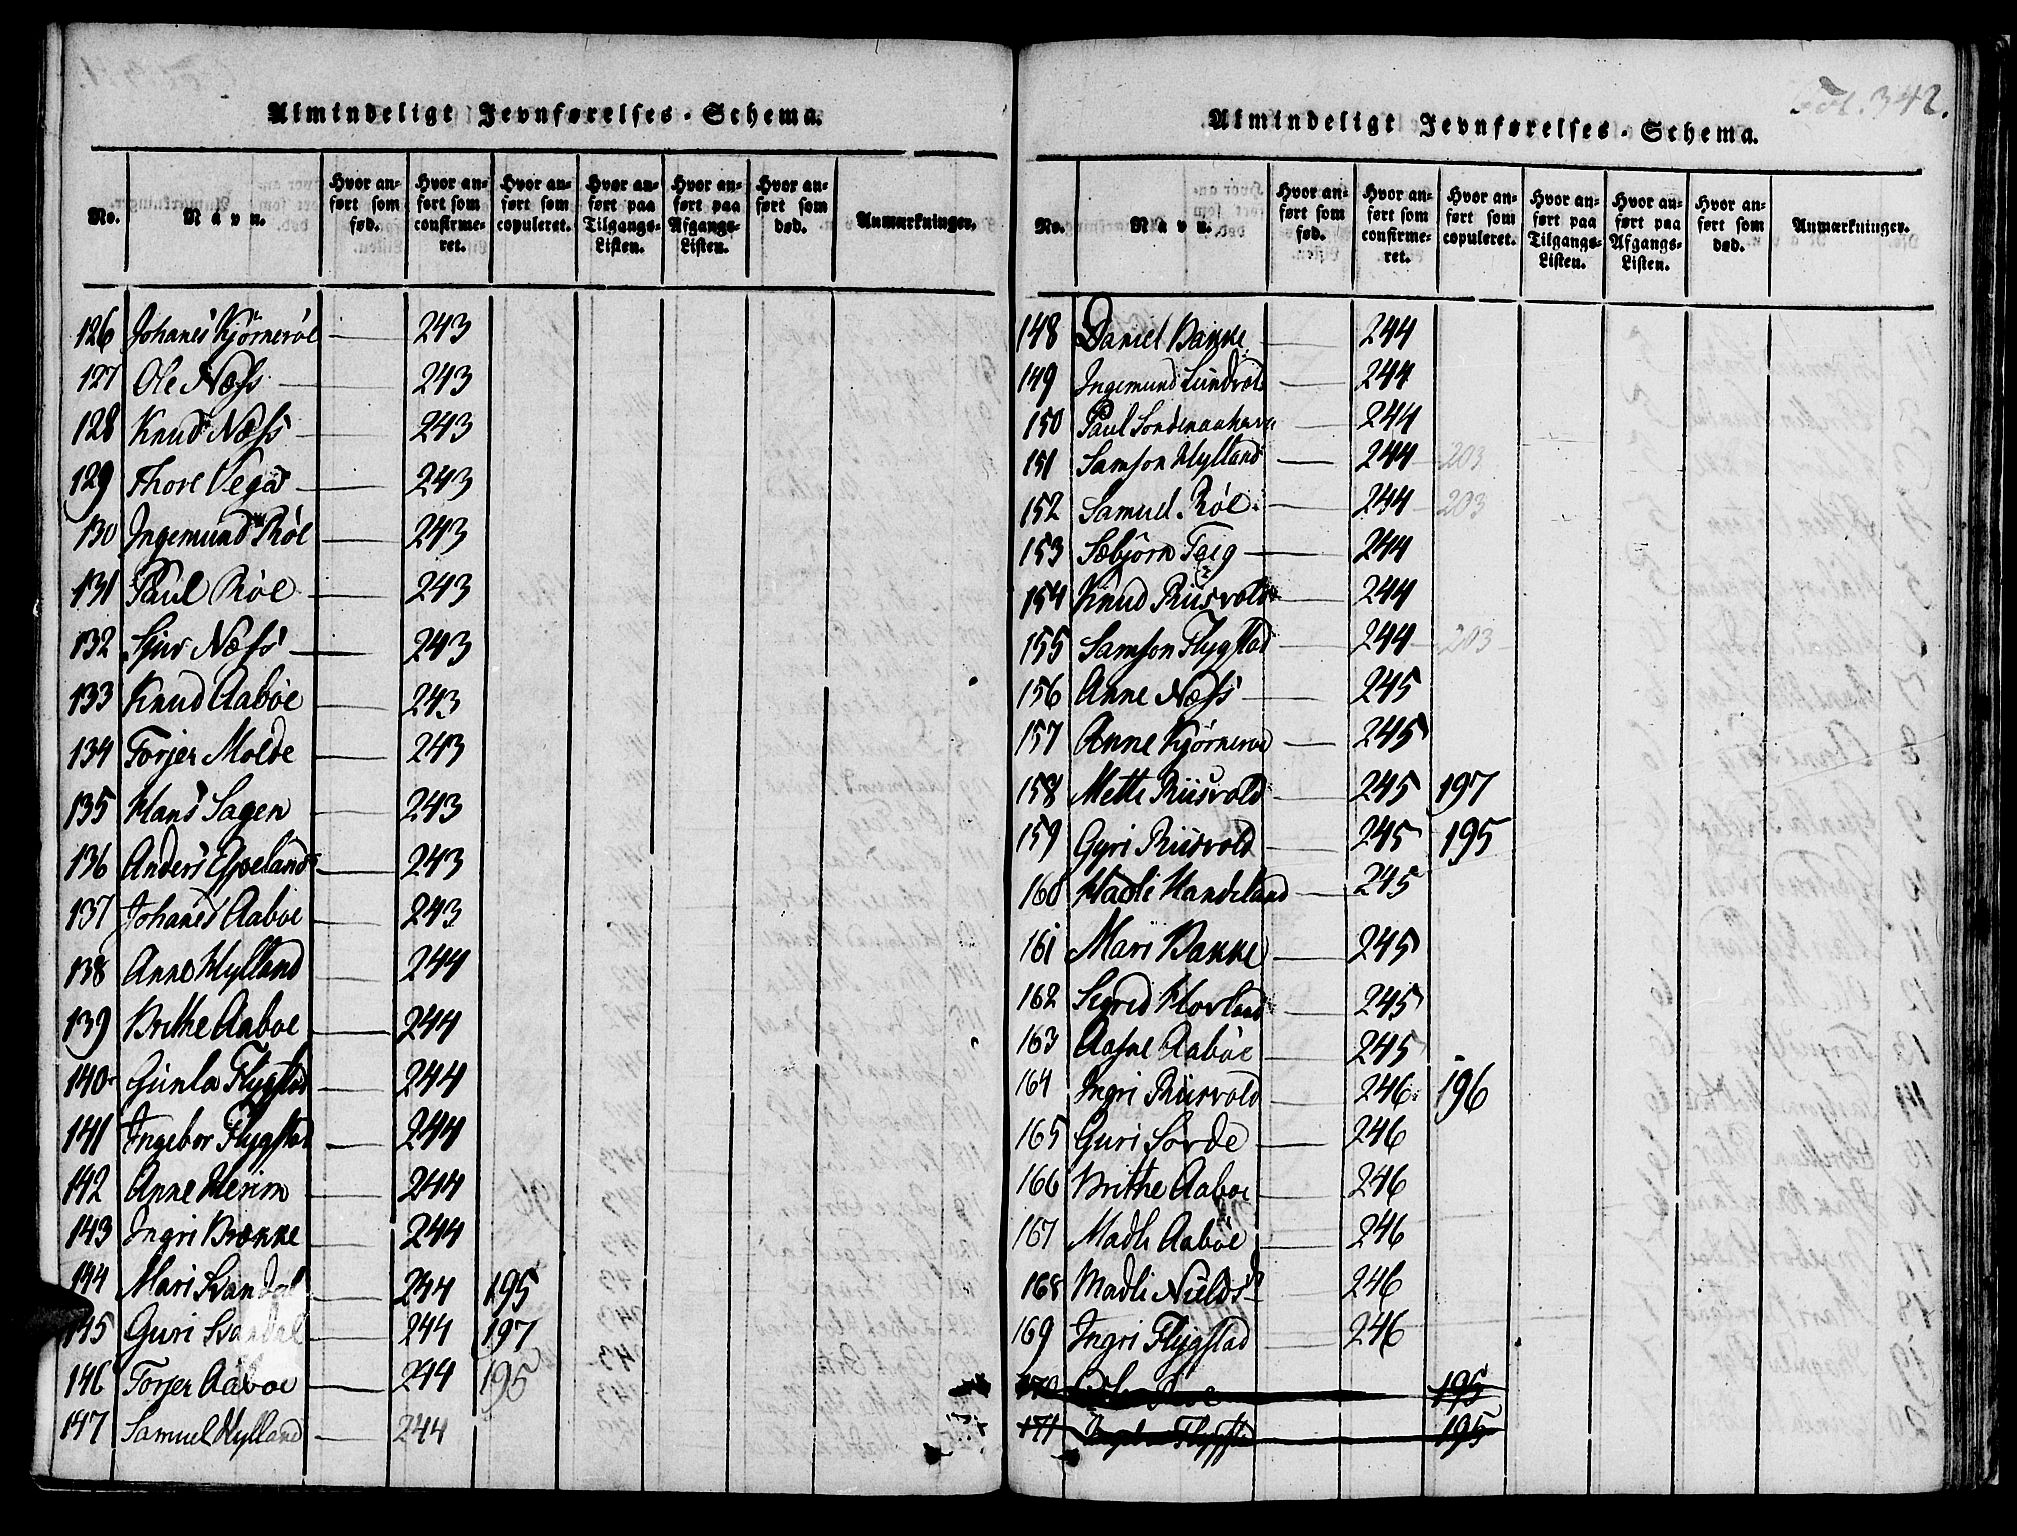 Almindeligt Jevnførelses-Schema.
No. Navn. Hvor anført som fød. Hvor anført som confirmeret. Hvor anført som copuleret. Hvor anført paa Tilgangs-Listen. Hvor anført paa Afgangs-Listen. Hvor anført som død. Anmærkninger.
126 Johanes Kjørnerøe 243
127 Ole Næss 243
128 Knud Næss 243
129 Thore Vega 243
130 Ingemund Røe 243
131 Paul Røe 243
132 Sjur Næss 243
133 Knud Aabøe 243
134 Torjer Molde 243
135 Hans Sagen 243
136 Anders Espeland 243
137 Johanes Aaboe 243
138 Anne Hylland 244
139 Brithe Aaboe 244
140 Gunla Flygstad 244
141 Ingebor Flygstad 244
142 Anne Herim 244
143 Ingri Brække 244
144 Mari Svandal 244 195
145 Guri Svandal 244 197
146 Torjer Aaboe 244 195
147 Samuel Hylland 244
Fol. 342.
Almindeligt Jevnførelses-Schema.
No. Navn. Hvor anført som fød. Hvor anført som confirmeret. Hvor anført som copuleret. Hvor anført paa Tilgangs-Listen. Hvor anført paa Afgangs-Listen. Hvor anført som død. Anmærkninger.
148 Daniel Bakke 244
149 Ingemund Lundvol 244
150 Paul 244
151 Samson Hylland 244 203
152 Samuel Røe 244 203
153 Sæbjørn 244
154 Knud Riisvold 244
155 Samson Flygstad 244 203
156 Anne Næss 245
157 Anne Kjørnerød 245
158 Mette Riisvold 245 197
159 Gyri Riisvold 245 195
160 Madli Handeland 245
161 Mari Bakke 245
162 Segred Hovland 245
163 Aasne Aabøe 245
164 Ingri Riisvold 246 196
165 Guri Sørde 246
166 Brithe Aaboe 246
167 Madli Aabøe 246
168 Madli 246
169 Ingri Flygstad 246
170 195
171 Flygst 195